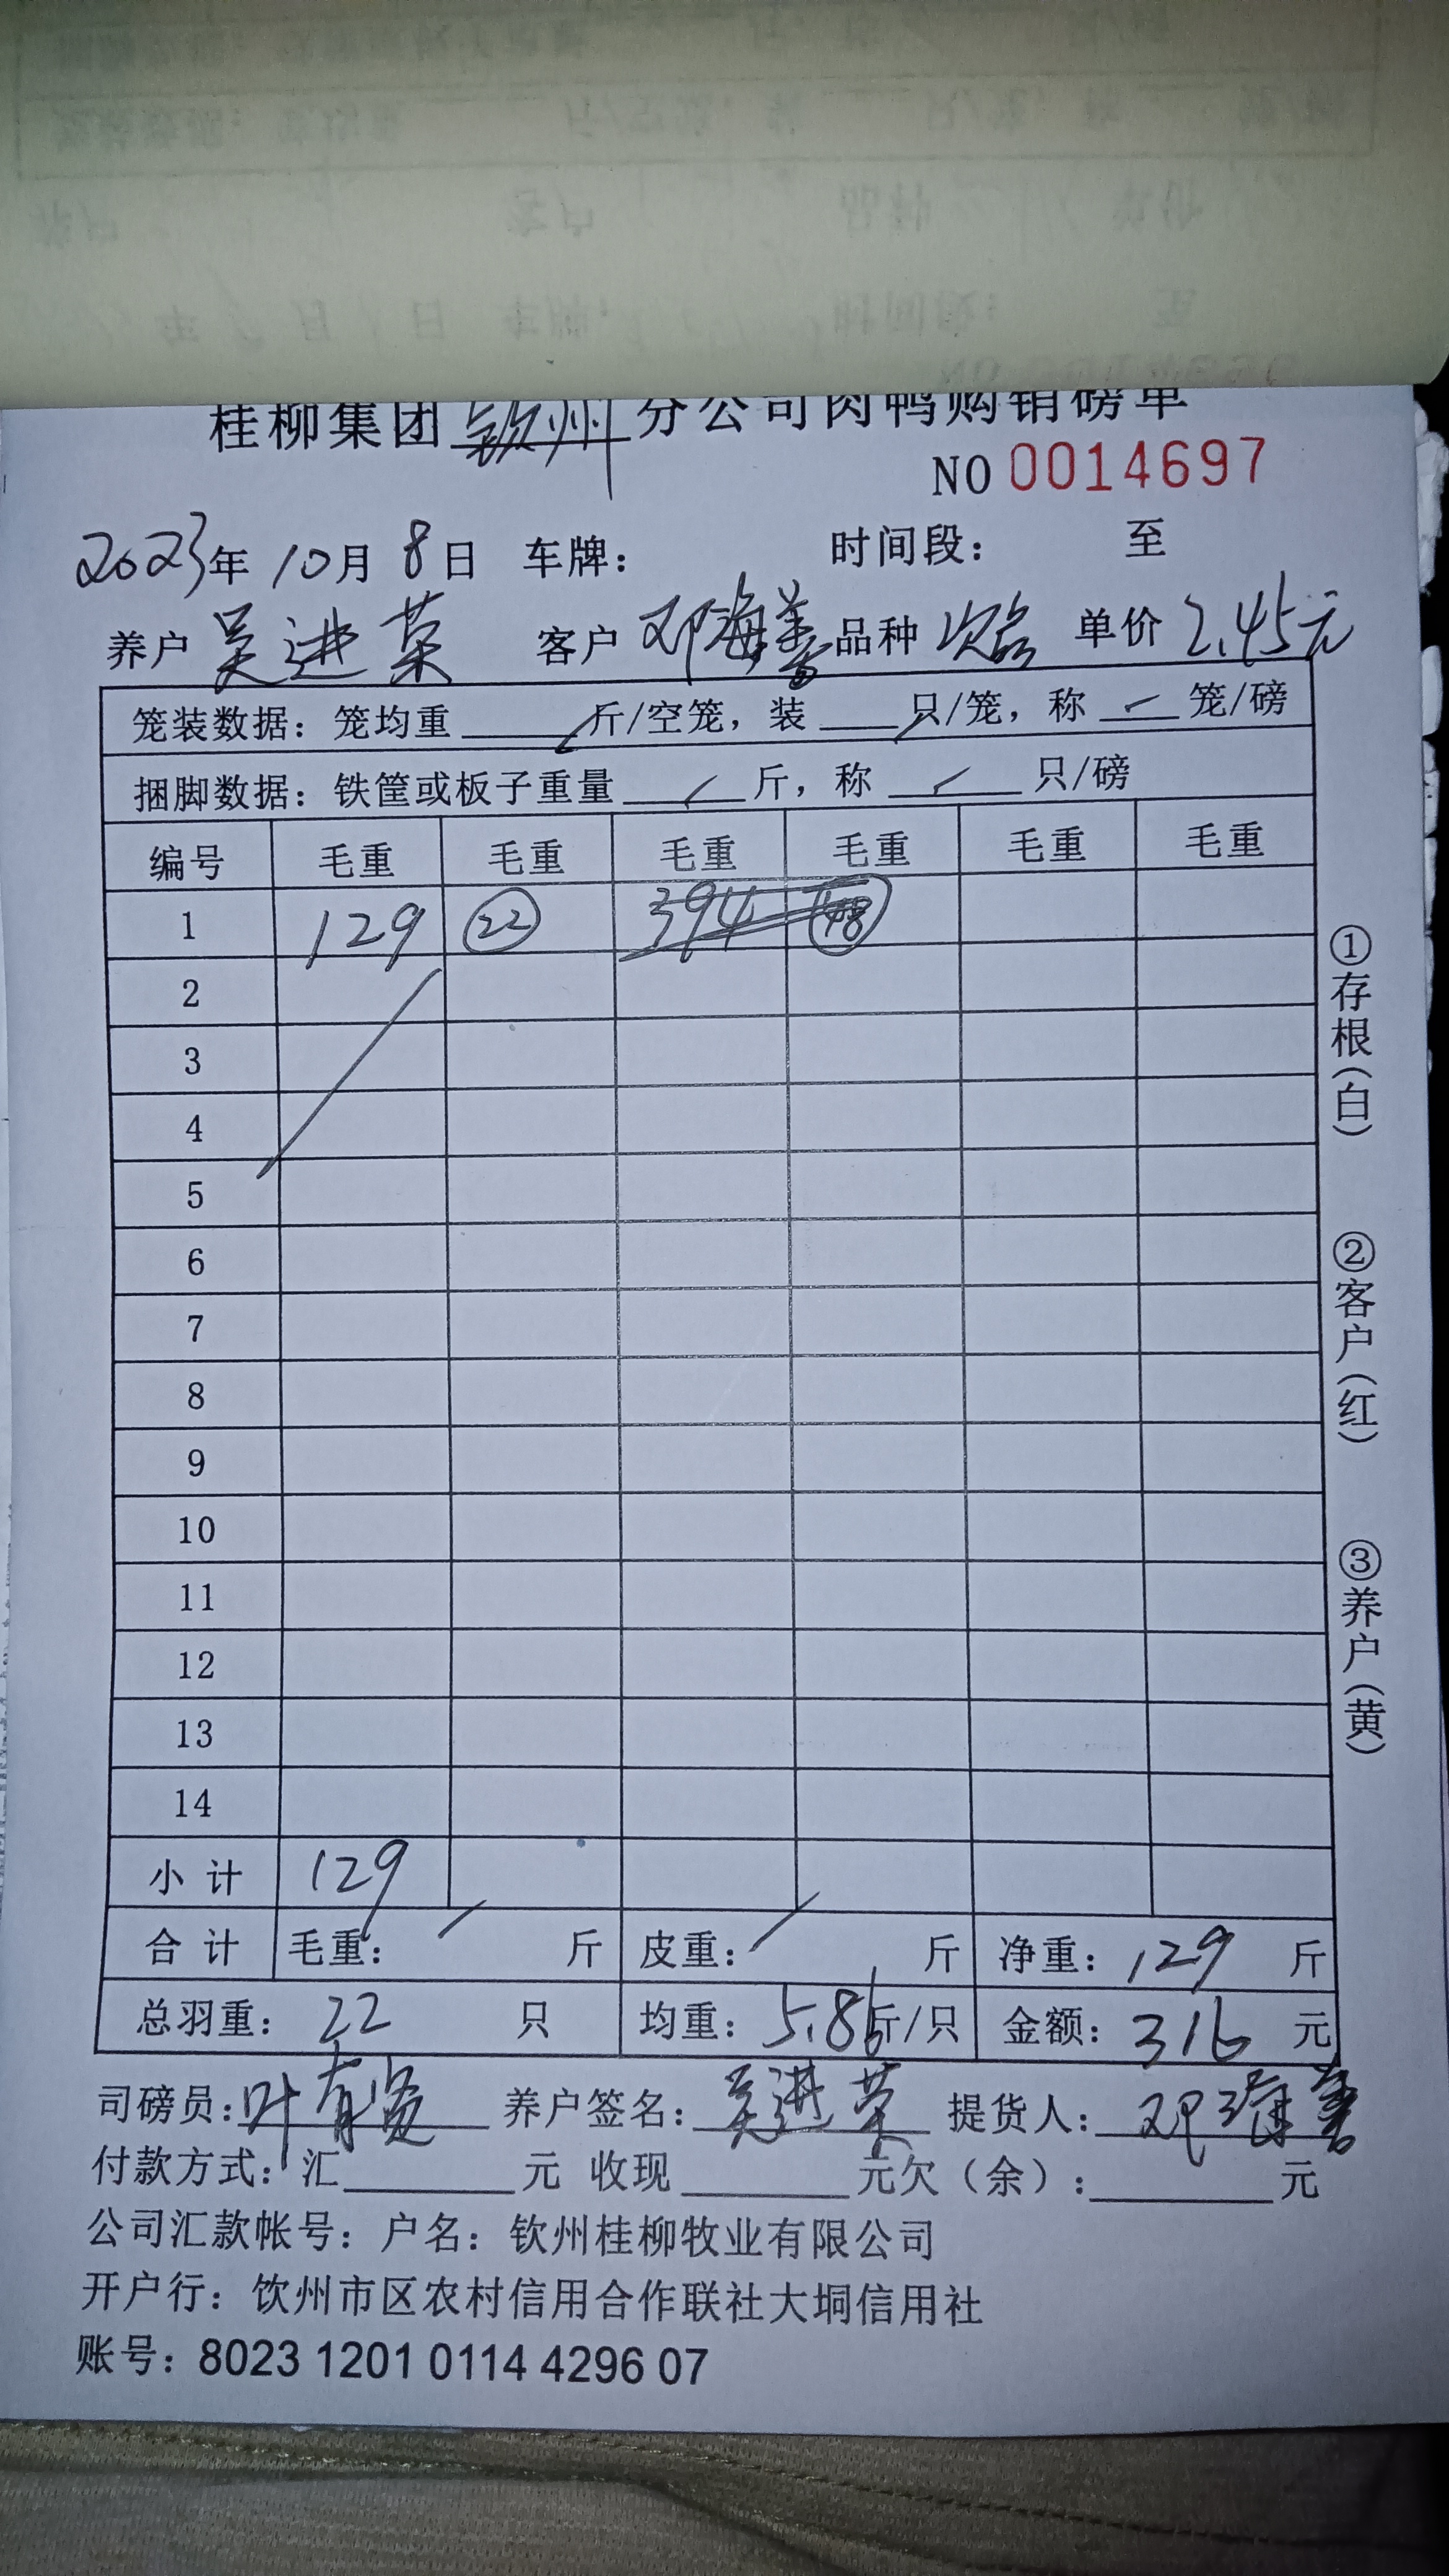 桂柳集团钦州分公司肉鸭购销磅单
NO 0014697
2023年 10月 8日 车牌： 时间段： 至
养户 吴进荣 客户 邓海善 品种 次品 单价 2.45元
笼装数据：笼均重 斤/空笼，装 只/笼，称 笼/磅
捆脚数据：铁筐或板子重量 斤，称 只/磅
编号 毛重 毛重 毛重 毛重 毛重 毛重
1 129 22 394 48
2
3
4
5
6
7
8
9
10
11
12
13
14
小计 129
合计 毛重： 斤 皮重： 斤 净重：129 斤
总羽重：22 只 均重：5.86斤/只 金额：316 元
司磅员：叶有 养户签名：吴进荣 提货人：邓海善
付款方式：汇 元 收现 元欠（余）： 元
公司汇款帐号：户名：钦州桂柳牧业有限公司
开户行：饮州市区农村信用合作联社大垌信用社
账号：8023 1201 0114 4296 07
①存根（白）
②客户（红）
③养户（黄）